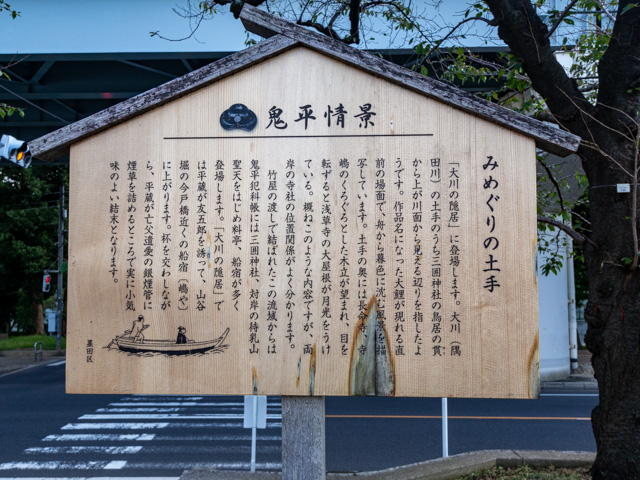 鬼平情景
みめぐりの土手
「大川の隠居」に登場します。大川（隅
田川）の土手のうち三囲神社の鳥居の貫
から上が川面から見える辺りを指したよ
うです。作品名になった大鯉が現れる直
前の場面で、舟から暮色に沈む風景を描
写しています。土手の奥には長命寺、寺
嶋のくろぐろとした木立が望まれ、目を
転ずると浅草寺の大屋根が月光をうけ
ている。概ねこのような内容ですが、両
岸の寺社の位置関係がよく分かります。
竹屋の渡しで結ばれたこの流域からは
鬼平犯科帳には三囲神社、対岸の待乳山
聖天をはじめ料亭、船宿が多く
登場します。「大川の隠居」で
は平蔵が友五郎を誘って、山谷
堀の今戸橋近くの船宿「嶋や」
に上がります。杯を交わしなが
ら、平蔵が亡父遺愛の銀煙管に
煙草を詰めるところで実に小気
味のよい結末となります。
墨田区